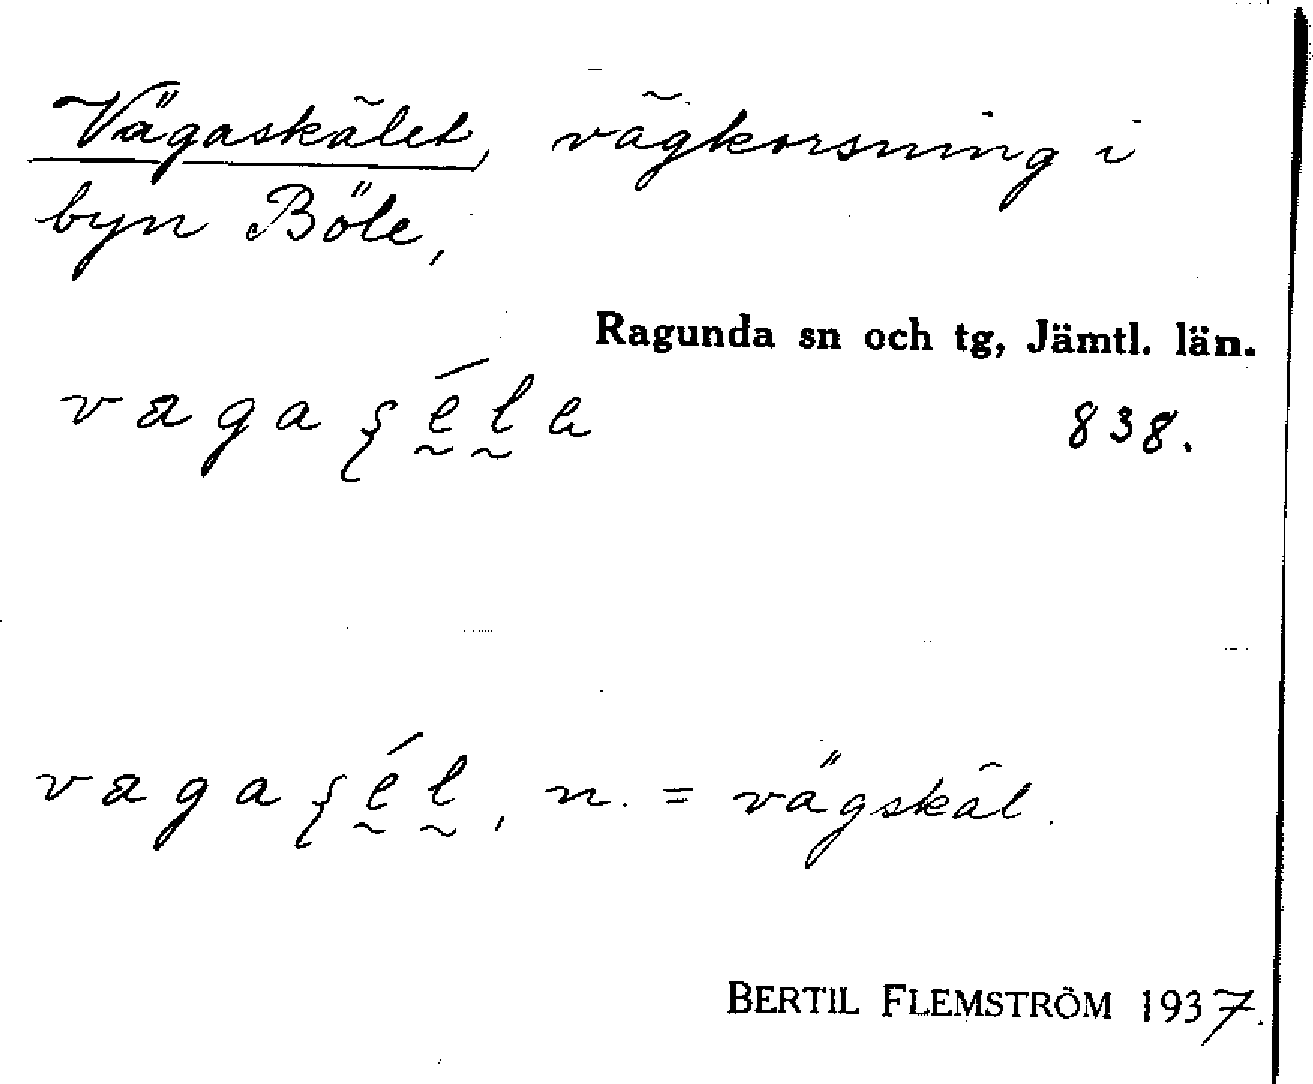 Vägaskälet, vägkorsning i
byn Böle,
Ragunda sn och tg, Jämtl. län.
838.
vagaʂḛ́l̰a
vagaʂḛ́l̰, n. = vägskäl.
BERTIL FLEMSTRÖM 1937.